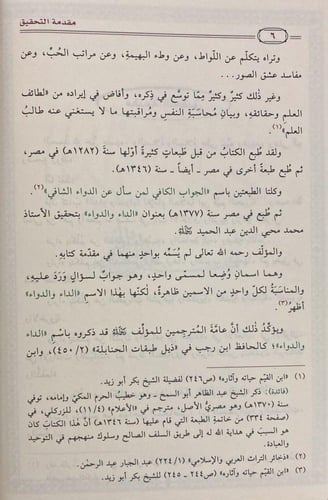 مقدمة التحقيق
٦
وتراه يتكلّم عن اللّواط، وعن وطء البهيمةِ، وعن مراتب الحُبِّ، وعن
مفاسد عشق الصور...
وغير ذلك كثيرٌ وكثيرٌ مِمّا توسَّع في ذِكره، وأفاضَ في إيراده من «لطائف
العلم وحقائقِه، وبيانِ مُحاسَبَةِ النفسِ ومُراقبتِها ما لا يستغني عنه طالبُ
العلم»(١).
ولقد طُبع الكتابُ من قبل طبعاتٍ كثيرةً أوّلها سنةَ (١٢٨٢هـ) في مصر،
ثم طُبع طبعةً أخرى في مصر ـ أيضاً ـ سنة (١٣٤٦هـ).
وكلتا الطبعتين باسم «الجواب الكافي لمن سأل عن الدواء الشافي»(٢)
ثم طُبع في مصر سنة (١٣٧٧هـ) بعنوان «الداء والدواء» بتحقيق الأستاذ
محمد محيي الدين عبد الحميد ﷺ.
والمؤلّف رحمه الله تعالى لم يُسَمِّه بواحدٍ منهما في مقدّمة كتابه.
وهما اسمانِ وُضِعا لمسمّى واحدٍ، وهو جوابٌ لسؤالٍ وَرَدَ عليه،
والمناسَبَةُ لكلِّ واحدٍ من الاسمين ظاهرةٌ، لكنّها بهٰذا الاسمِ «الداء والدواء»
أظهرُ(٣).
ويؤكّدُ ذلك أنَّ عامّةَ المُترجِمين للمؤلّف قد ذكروه باسْمِ «الداء
والدواء»؛ كالحافظ ابن رجب في «ذيل طبقات الحنابلة» (٢/٤٥٠)، وابن
(١) «ابن القيّم حياته وآثاره» (ص٢٤٦) لفضيلة الشيخ بكر أبو زيد.
(فائدة): ذكر الشيخ عبد الظاهر أبو السمح ـ وهو خطيبُ الحرم المكّيّ وإمامه، توفي
سنة (١٣٧٠هـ) وهو مصريُّ الأصل، مترجم في «الأعلام» (٤/١١)، للزركلي، في
(صفحة ٣٣٤) من خاتمة الطبعة التي قام عليها (سنة ١٣٤٦هـ) أنَّ هٰذا الكتابَ كان
هو السببَ في هداية الله له إلى طريق السلف الصالح وسلوك منهجهم في التوحيد
والعبادة.
(٢) «ذخائر التراث العربي والإسلامي» (١/٢٢٤) عبد الجبار عبد الرحمٰن.
(٣) «ابن القيّم حياته وآثاره» (ص٢٤٤ ـ ٢٤٥) للشيخ بكر أبو زيد.